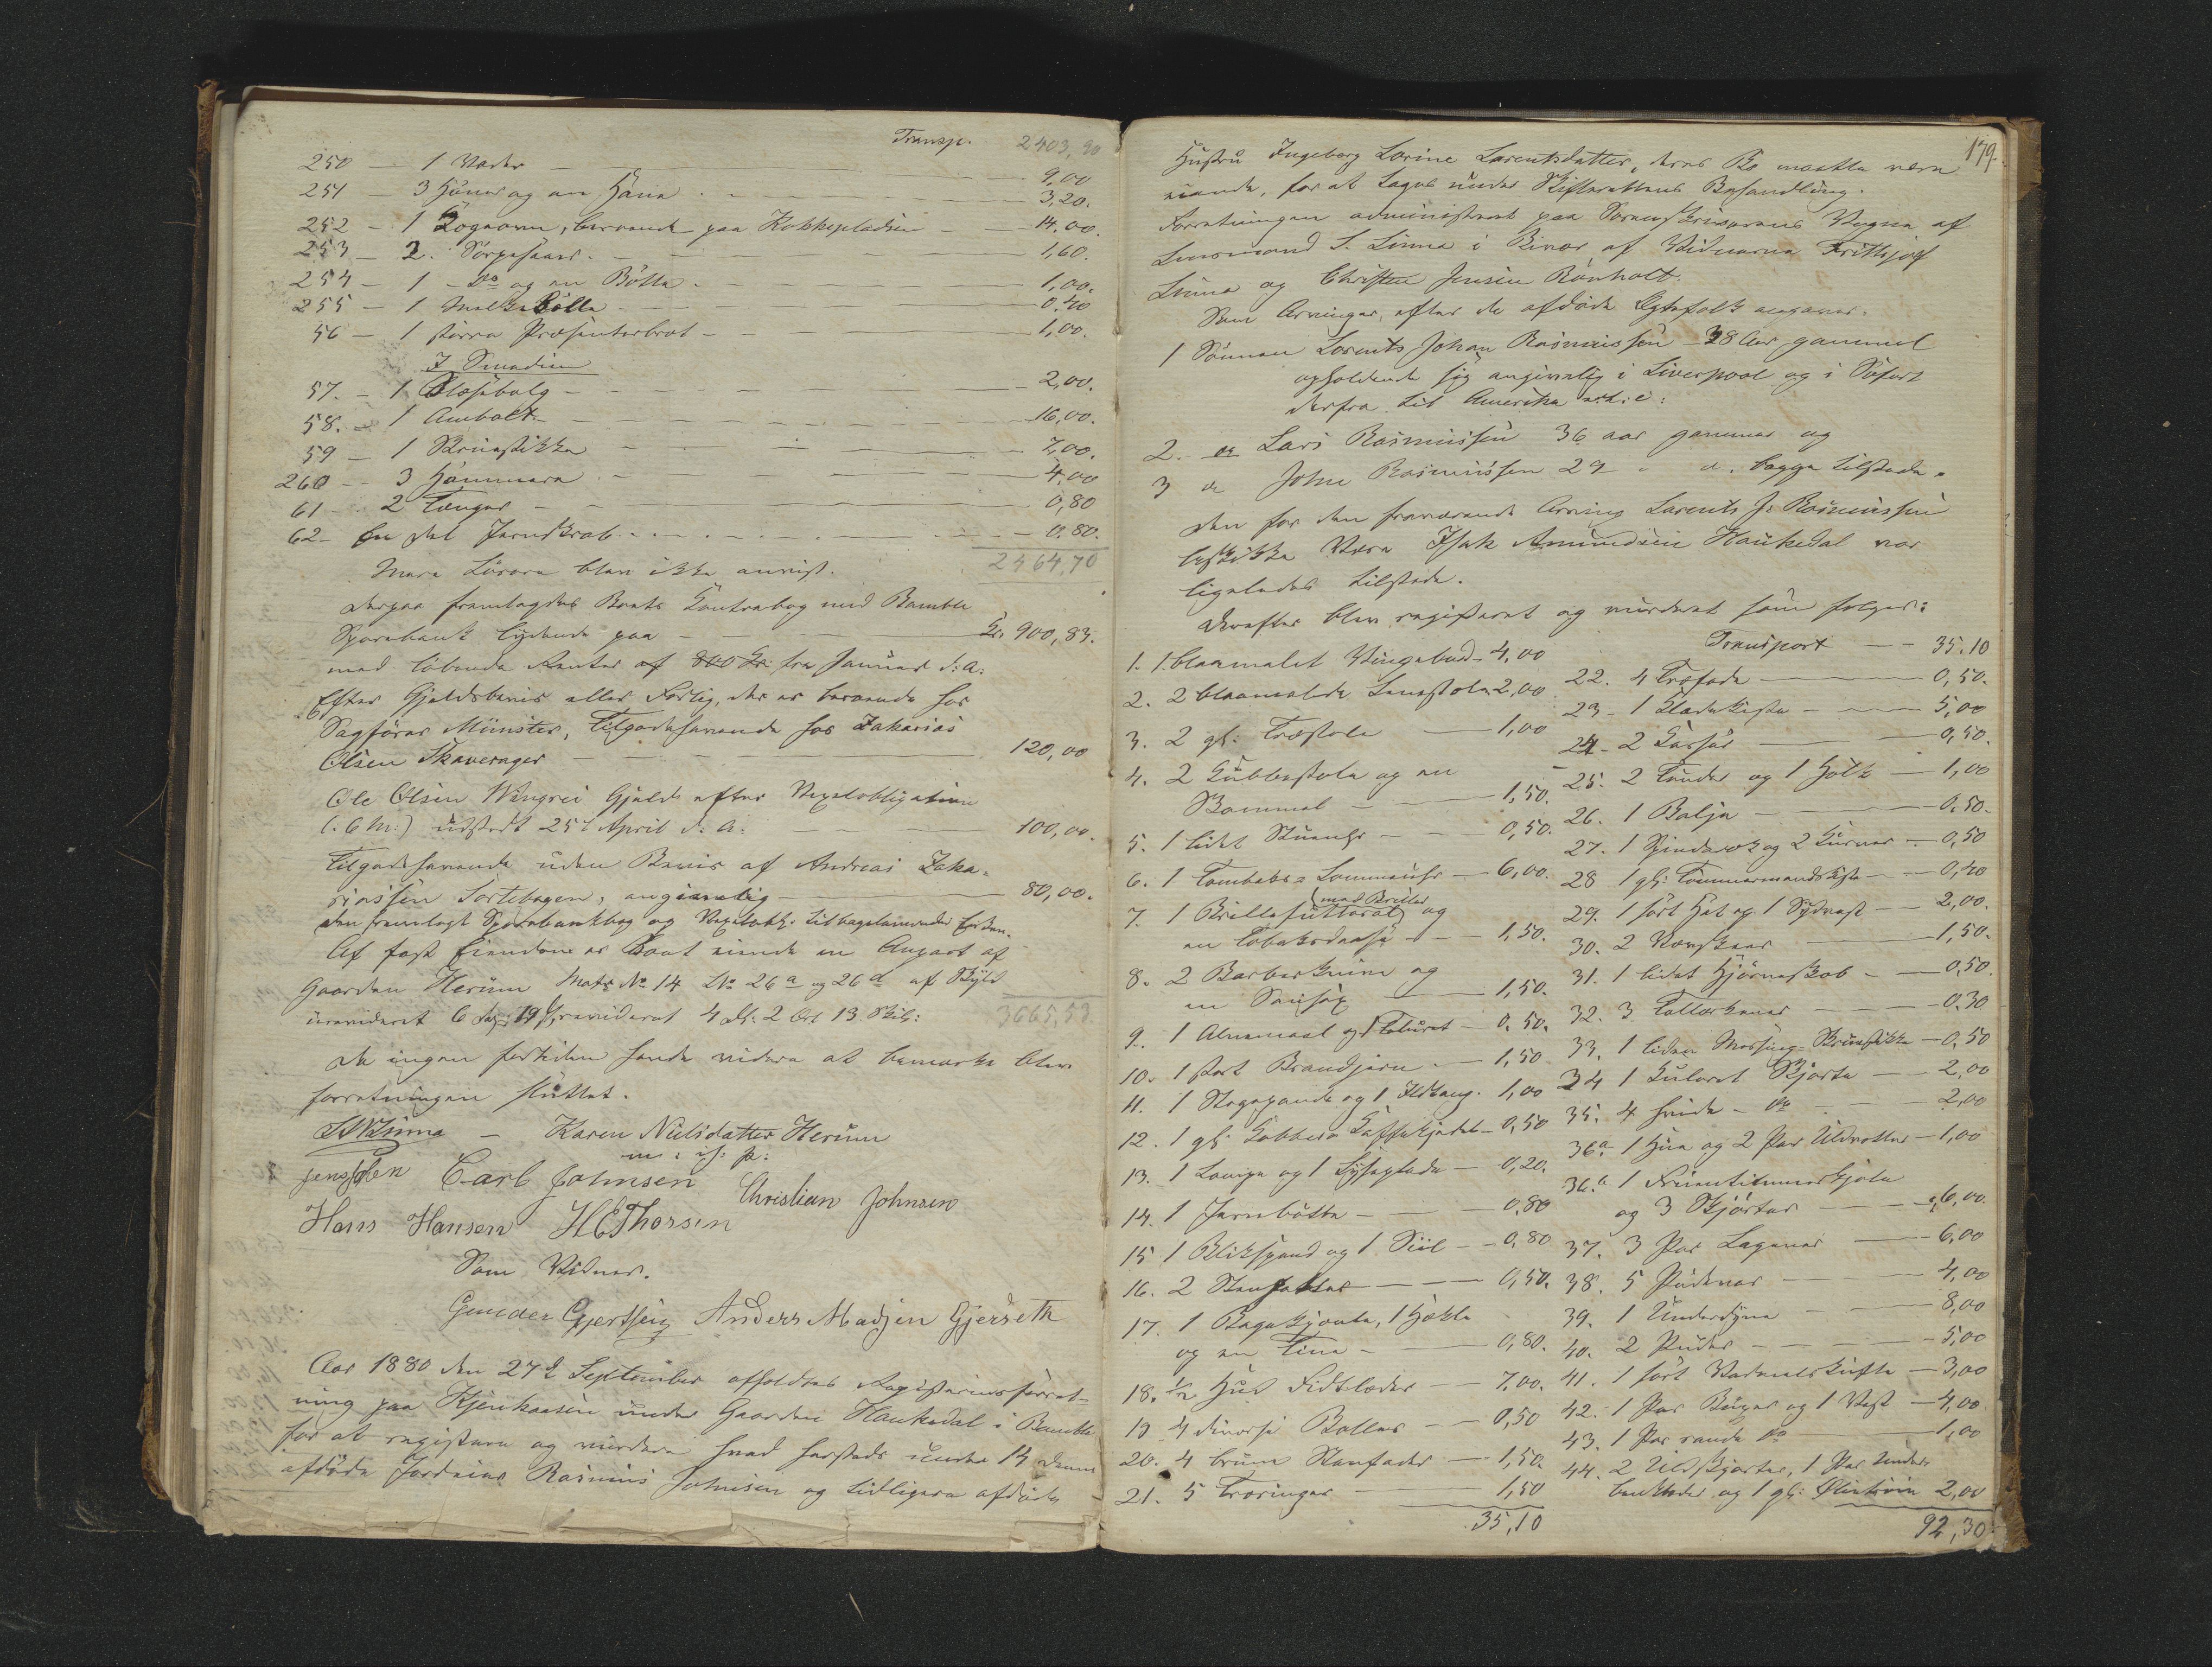 Transp. 2403,90
250 — 1 Væder — 9,00
251 — 3 Höner og en Hane — 3,20.
252 — 1 Kogeovn, beroende paa Kokkepladsen — 14,00.
253 — 2 Sörpesaaer — 1,60.
254 — 1 — do og en Bötte — 1,00.
255 — 1 Melkebötte — 0,40
56 — 1 større Præsenterbret — 1,00.
I Smedien
57. — 1 Blæsebælg — 2,00.
58. — 1 Ambolt — 16,00.
59 — 1 Skruestikke — 7,00.
260 — 3 Hammere — 4,00
61 — 2 Tænger — 0,80
62 — En Del Jernskrab — 0,80.
Mere Lösöre blev ikke anvist. 2464,70
Derpaa fremlagdes Boets Contrabog med Bamble
Sparebank lydende paa — Kr. 900,83.
med löbende Renter af 800 Kr. fra Januar d: A:
Efter Gjeldsbevis eller Forlig, der er beroende hos
Sagförer Münster, Tilgodehavende hos Zakarias
Olsen Skaverager — 120,00
Ole Olsen Vingrei Gjeld efter Vexelobligation
(6 M:) udstedt 25 April d: A: — 100,00.
Tilgodehavende uden Bevis af Andreas Zaka-
riassen Tortebogen, angivelig — 80,00.
Den fremlagt Sparebankbog og Vexelobl. tilbageleveredes Enken.
Af fast Eiendom er Boet eiende en Anpart af
Gaarden Herum Matr No 14 LNo 26a og 26d af Skyld
urevideret 6 19 revideret 4 Dl. 2 Ort 13 Skil: 3665,53
Da ingen fortiden havde videre at bemærke blev
forretningen sluttet.
Linna — Karen Nielsdatter Herum
m: i: P:
Carl Johnsen Christian Johnsen
Hans Hansen H E Thorsen
Som Vidner.
Gunder Gjertsen Anders Madsen Gjerseth
Aar 1880 den 27d September afholdtes Registreringsforret-
ning paa Stjenkaasen under Gaarden Haukedal i Bamble
for at registrere og vurdere hvad hersteds under 14 dennes
afdöde Jordeier Rasmus Johnsen og tidligere afdöde
179.
Hustru Ingeborg Lorine Larentsdatter, deres Bo maatte være
eiende, for at tages under Skifterettens Behandling.
Forretningen administreret paa Sorenskriverens Vegne af
Lensmand S. Linna i Bivær af Vidnerne Frittsjof
Linna og Christen Jensen Rönholt.
Som Arvinger efter de afdöde Egtefolk opgaves.
1 Sönnen Lorents Johan Rasmussen 38 Aar gammel
opholdende sig angivelig i Liverpool og i Söfart
derfra til Amerika
2. do Lars Rasmussen 36 aar gammel og
3 do John Rasmussen 29 — begge tilstede.
Den for den fraværende Arving Larents J. Rasmussen
beskikke Værge Isak Amundsen Haukedal var
ligeledes tilstede.
Derefter blev registreret og vurderet som fölger:
1. 1 blaamalet Vingebord 4,00
2. 2 blaamalede Lænestole 2,00
3. 2 gl: Træstole — 1,00
4. 2 Kubbestole og en
Skammel — 1,50.
5. 1 lidet Stueuhr — 0,50.
6. 1 Tombaks Lommeuhr — 6,00.
7. 1 Brillefutteral (med Briller) og
en Tobaksdaase — 1,50.
8. 2 Barberknive og
en Sausax — 1,50.
9. 1 Alnemaal og 1 — 0,50.
10. 1 stort Brandjern — 1,50
11. 1 Stegepande og 1 Ildtang. 1,00
12. 1 gl: Kobber Kaffekjedel 0,50
13. 1 Lampe og 1 Lyseplade — 0,20.
14. 1 Jernbötte — 0,80
15 1 Blikspand og 1 Siil — 0,80
16. 2 Stenfatter — 0,50.
17. 1 Bagekjevle, 1 Hekle
og en Tine — 0,80.
18. 1/2 Hud Fidtlæder — 7,00.
19 4 diverse Boller — 0,50
20. 4 brune Stenfade — 1,50.
21. 5 Træringer — 1,50
35,10
Transport — 35,10
22. 4 Træfade — 0,50.
23 — 1 Klædekiste — 5,00
24 — 2 Kasser — 0,50.
25. 2 Tönder og 1 Holk — 1,00
26. 1 Balje — 0,50.
27. 1 Spinderok og 2 Kurver — 0,50
28 1 gl: Tömmermandskiste — 0,40
29. 1 sort Hat og 1 Sydvest — 2,00.
30. 2 — 1,50.
31. 1 lidet Hjörneskab — 0,50.
32. 3 Tallerkener — 0,30
33. 1 liden Messing Skruestikke — 0,50
34 1 Kuloret Skjorte — 2,00
35. 4 hvide — do — 2,00
36a. 1 Hue og 2 Par Uldvotter — 1,00
36.a 1 Fruentimmerkjole
og 3 Skjörter — 6,00.
37. 3 Par Lagener — 6,00
38. 5 Puder — 4,00
39. 1 Underdyne — 8,00
40. 2 Puder — 5,00
41. 1 sort Vadmelskufte — 3,00
42. 1 Par Buxer og 1 Vest — 4,00
43. 1 Par do — 1,00
44. 2 Uldskjorter, 1 Par Under-
benklæder og 1 gl: 2,00
92,30